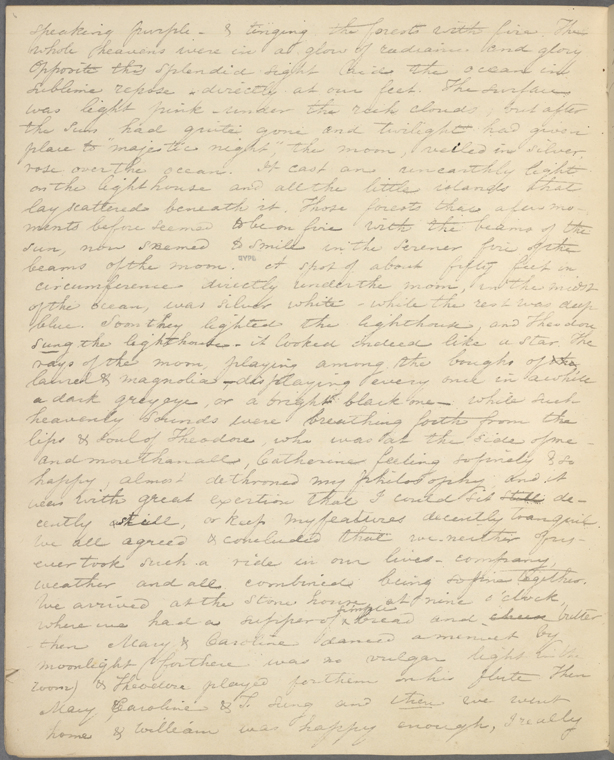 speaking purple - & tinging the forests with fire. The
whole heavens were in a glow of radiance and glory
Opposite this splendid sight laid the ocean in
sublime repose - directly at our feet. The surface
was light pink - under the rich clouds, but after
the sun had quite gone and twilight had given
place to "majestic night" the moon, veiled in silver,
rose over the ocean. It cast an unearthly light
on the lighthouse and all the little islands that
lay scattered beneath it. Those forests that a few mo-
ments before seemed to be on fire with the beams of the
sun, now seemed to smile in the serener fire of the
beams of the moon. A spot of about fifty feet in
NYPL
circumference directly under the moon, in the midst
of the ocean, was silver white - while the rest was deep
blue. Soon they lighted the lighthouse, and Theodore
sung the lighthouse - it looked indeed like a star. The
rays of the moon, playing among the boughs of the
laurel & magnolia - displaying every once in awhile
a dark grey eye, or a bright black one - while such
heavenly sounds were breathing forth from the
lips & soul of Theodore, who was at the side of me -
and more than all, Catherine feeling so finely & so
happy almost dethroned my philosophy and it
was with great exertion that I could sit still de-
cently still, or keep my features decently tranquil.
We all agreed & concluded that we neither of us
ever took such a ride in our lives - company,
weather and all combined being so fine together.
We arrived at the stone house at nine o'clock
where we had a supper of simple bread and cheese butter
then Mary & Caroline danced a minuet by
moonlight (for there was no vulgar light in the
room) & Theodore played for them on his flute Then
Mary Caroline & I sung and then we went
home & William was happy enough, I really